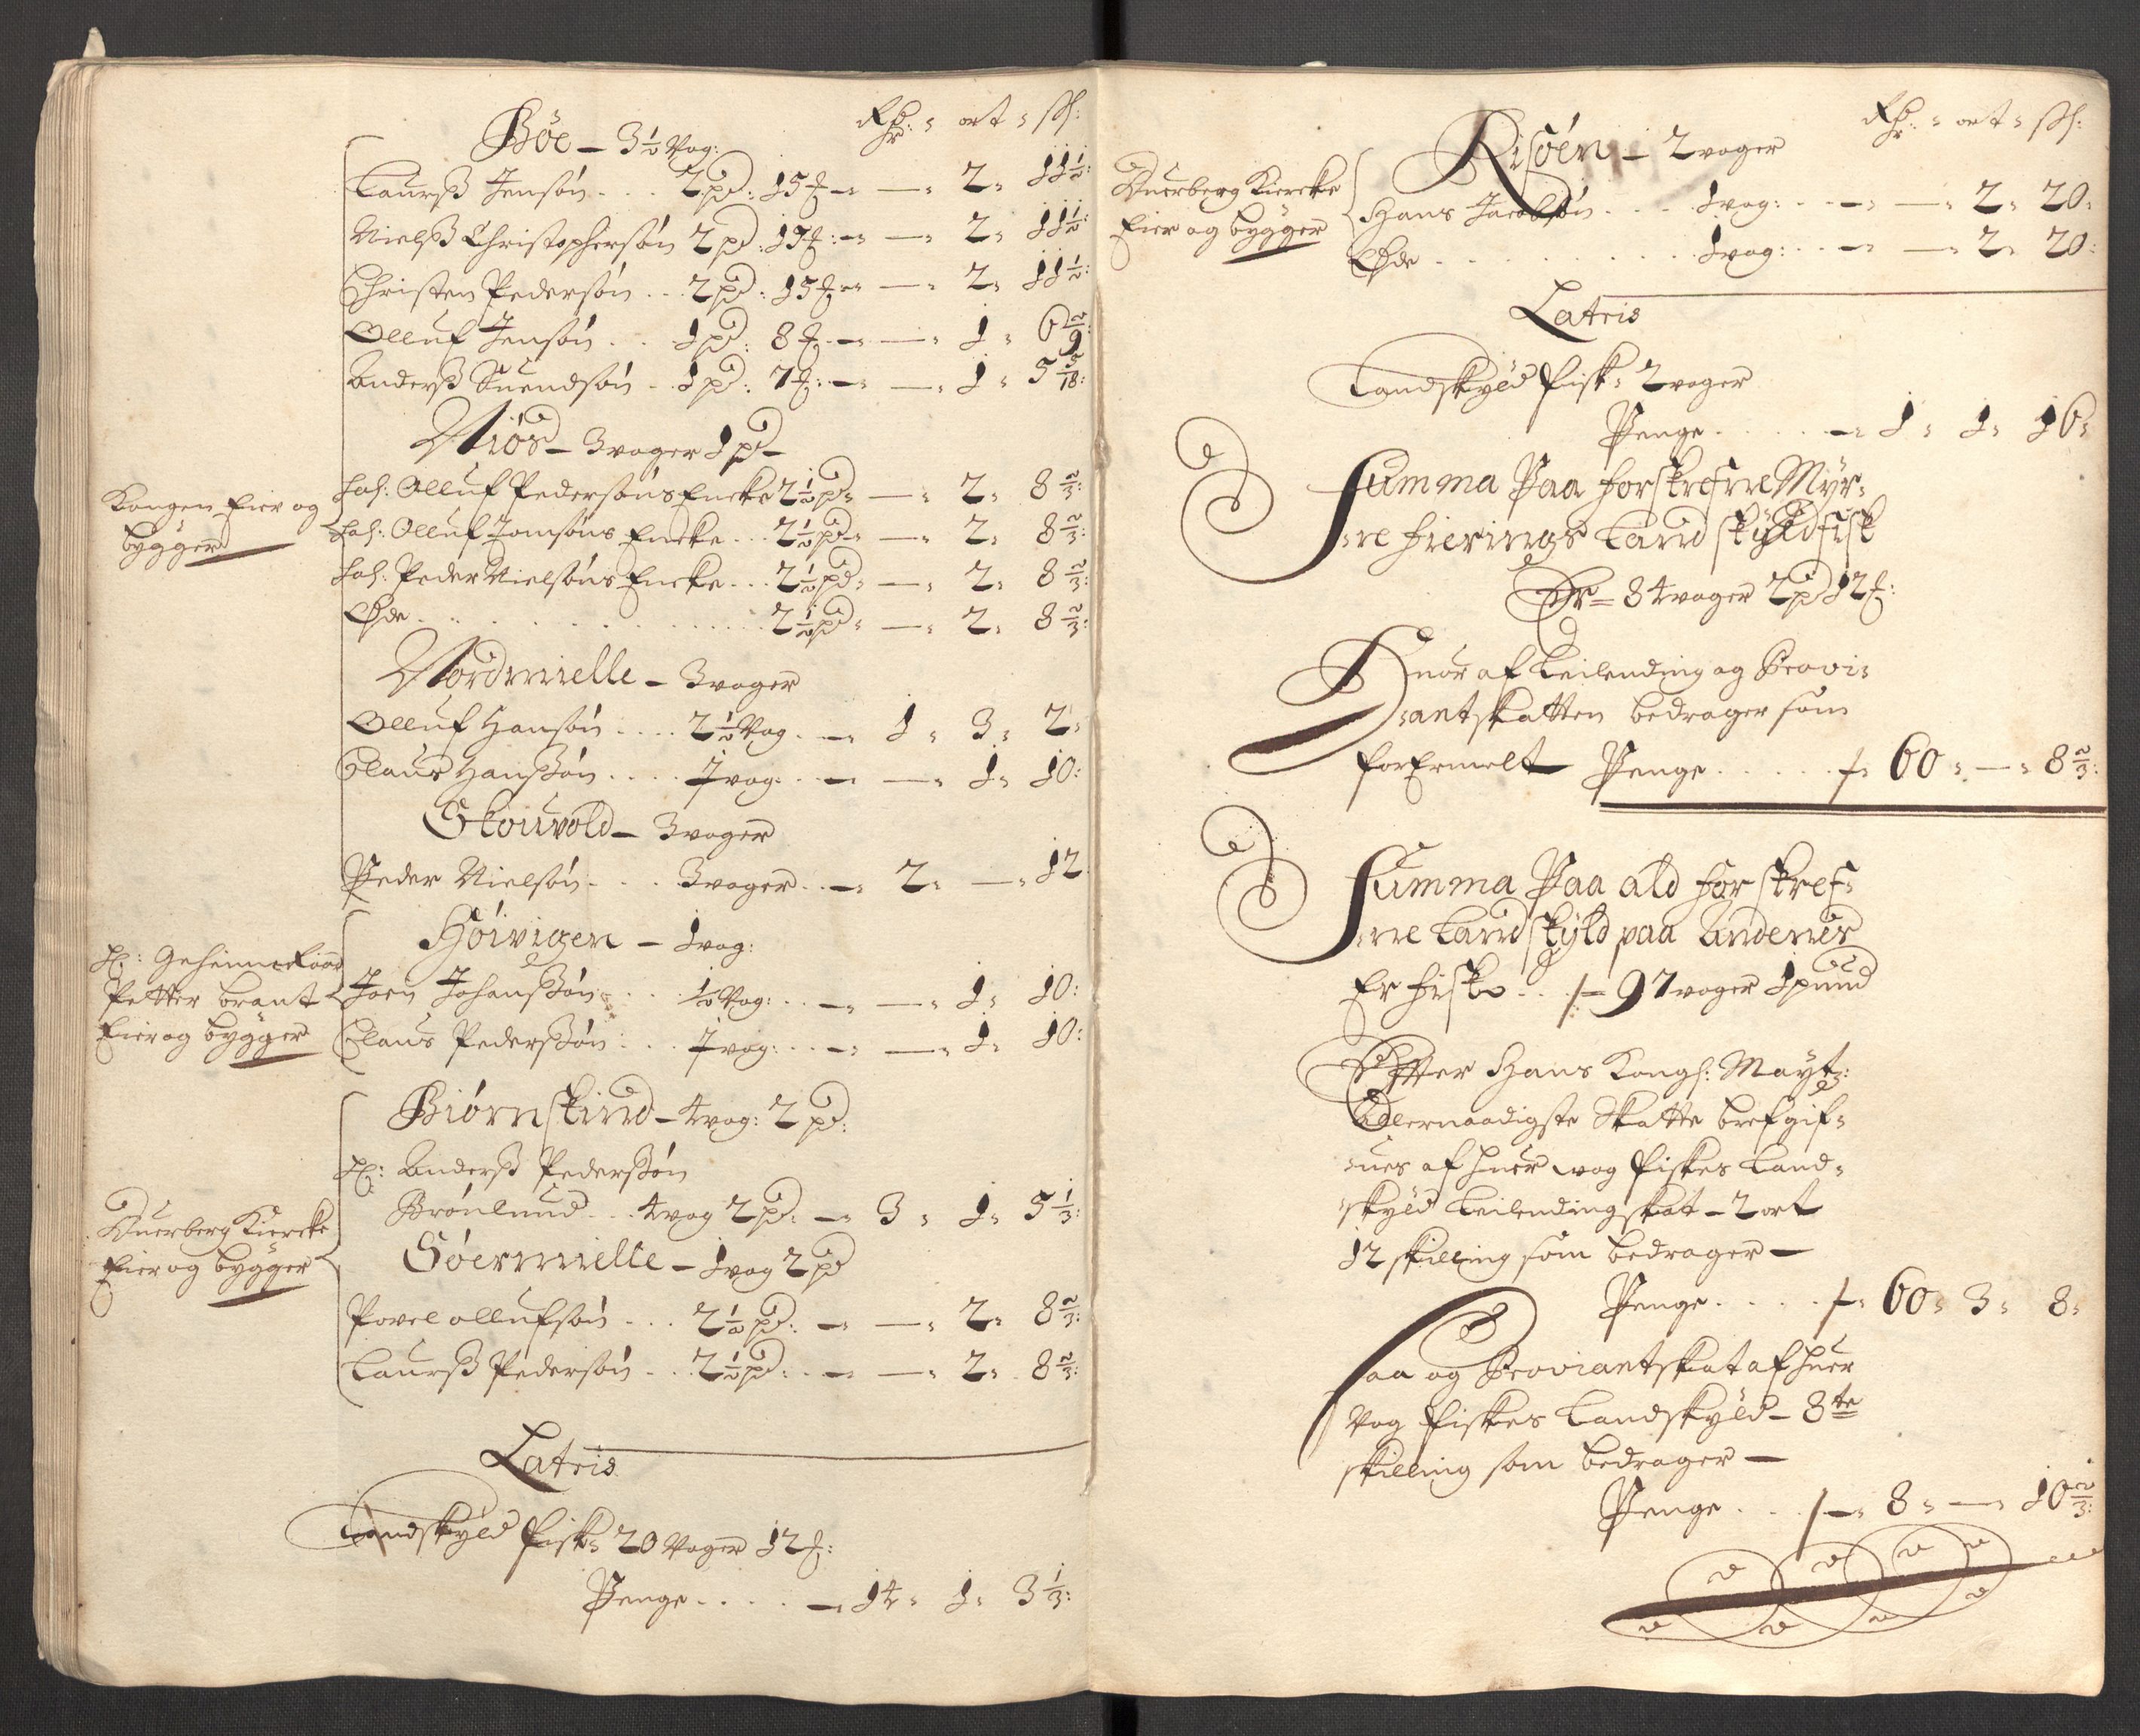 Rdr: ort: sk:
Böe – 3½ Vog:
Laurß Jensøn . . . 2 pd: 15 ℔ – — 2: 11½:
Nielß Christophersøn 2 pd: 15 ℔: – — 2: 11½:
Christen Pedersøn . . 2 pd: 15 ℔ – — 2: 11½:
Olluf Jensøn . . 1 pd: 8 ℔ – — 1: 6 2/9:
Anderß Suendsøn . 1 pd: 7 ℔: – — 1: 5 5/18:
Niös – 3 voger 1 pd –
Kongen Eier og
bygger
Sal: Olluf Pedersøns Encke 2½ pd: — 2: 8⅔:
Sal: Olluf Tomsøns Encke . . 2½ pd: — 2: 8⅔:
Sal: Peder Nielsøns Encke . . 2½ pd: — 2: 8⅔:
Øde . . . . . . 2½ pd: — 2: 8⅔:
Nordmielle – 3 voger
Olluf Hansøn . . . . 2½ Vog. – 1: 3: 2:
Claus Hanssøn . . . . ½ vog: . – — 1: 10:
Skouvold – 3 voger
Peder Nielsøn . . . 3 voger . – 2: — 12
Höivigen – 1 vog:
H: Geheimeraad
Petter brant
Eier og bygger
Joen Johanssøn . . . ½ Vog: . . – — 1: 10:
Claus Pederssøn . . . ½ vog: . . – — 1: 10:
Biörnskind – 4 vog: 2 pd:
Hr: Anderß Pederssøn
Brönlund . . . 4 vog 2 pd: – 3: 1: 5⅓:
Duerberg Kiercke
Eier og bygger
Söermielle – 1 vog 2 pd
Povel ollufsøn . . . 2½ pd: – — 2: 8⅔:
Laurß Pedersøn . . 2½ pd: . – — 2: 8⅔:
Latris
Landskyld Fisk: 20 Voger 12 ℔:
Penge . . . . – 14: 1: 3⅓:
Rdr: ort: sk:
Risöen – 2 voger
Duerberg Kiercke
Eier og bygger
Hans Jacobsøn . . . 1 vog: . . – — 2: 20:
Øde . . . . . . . . 1 vog: . . – — 2: 20:
Latris
Landskyld Fisk: 2 voger
Penge . . . . . – 1: 1: 16:
Summa Paa forskrefne Myr:
:re fierings Land skyld fisk
Er = 84 voger 2 pd 12 ℔:
Huor af Leilending og Provi:
:antskatten bedrager som
forErmelt Penge . . . . . 60: —: 8⅔:
Summa Paa ald for skref:
:ne Land skyld paa Andenes
Er fisk . . 97 voger 1 pund
Efter Hans Kongl: Maytz:
Allernaadigste Skatte bref gif:
:ues af huer vog Fiskes Land:
:skyld Leilending skat – 2 ort
12 skilling som bedrager –
Penge . . . . . 60: 3: 8:
Saa og Proviantskat af huer
Vog Fiskes Landskyld – 8te
skilling som bedrager –
Penge . . . 8: — 10⅔: